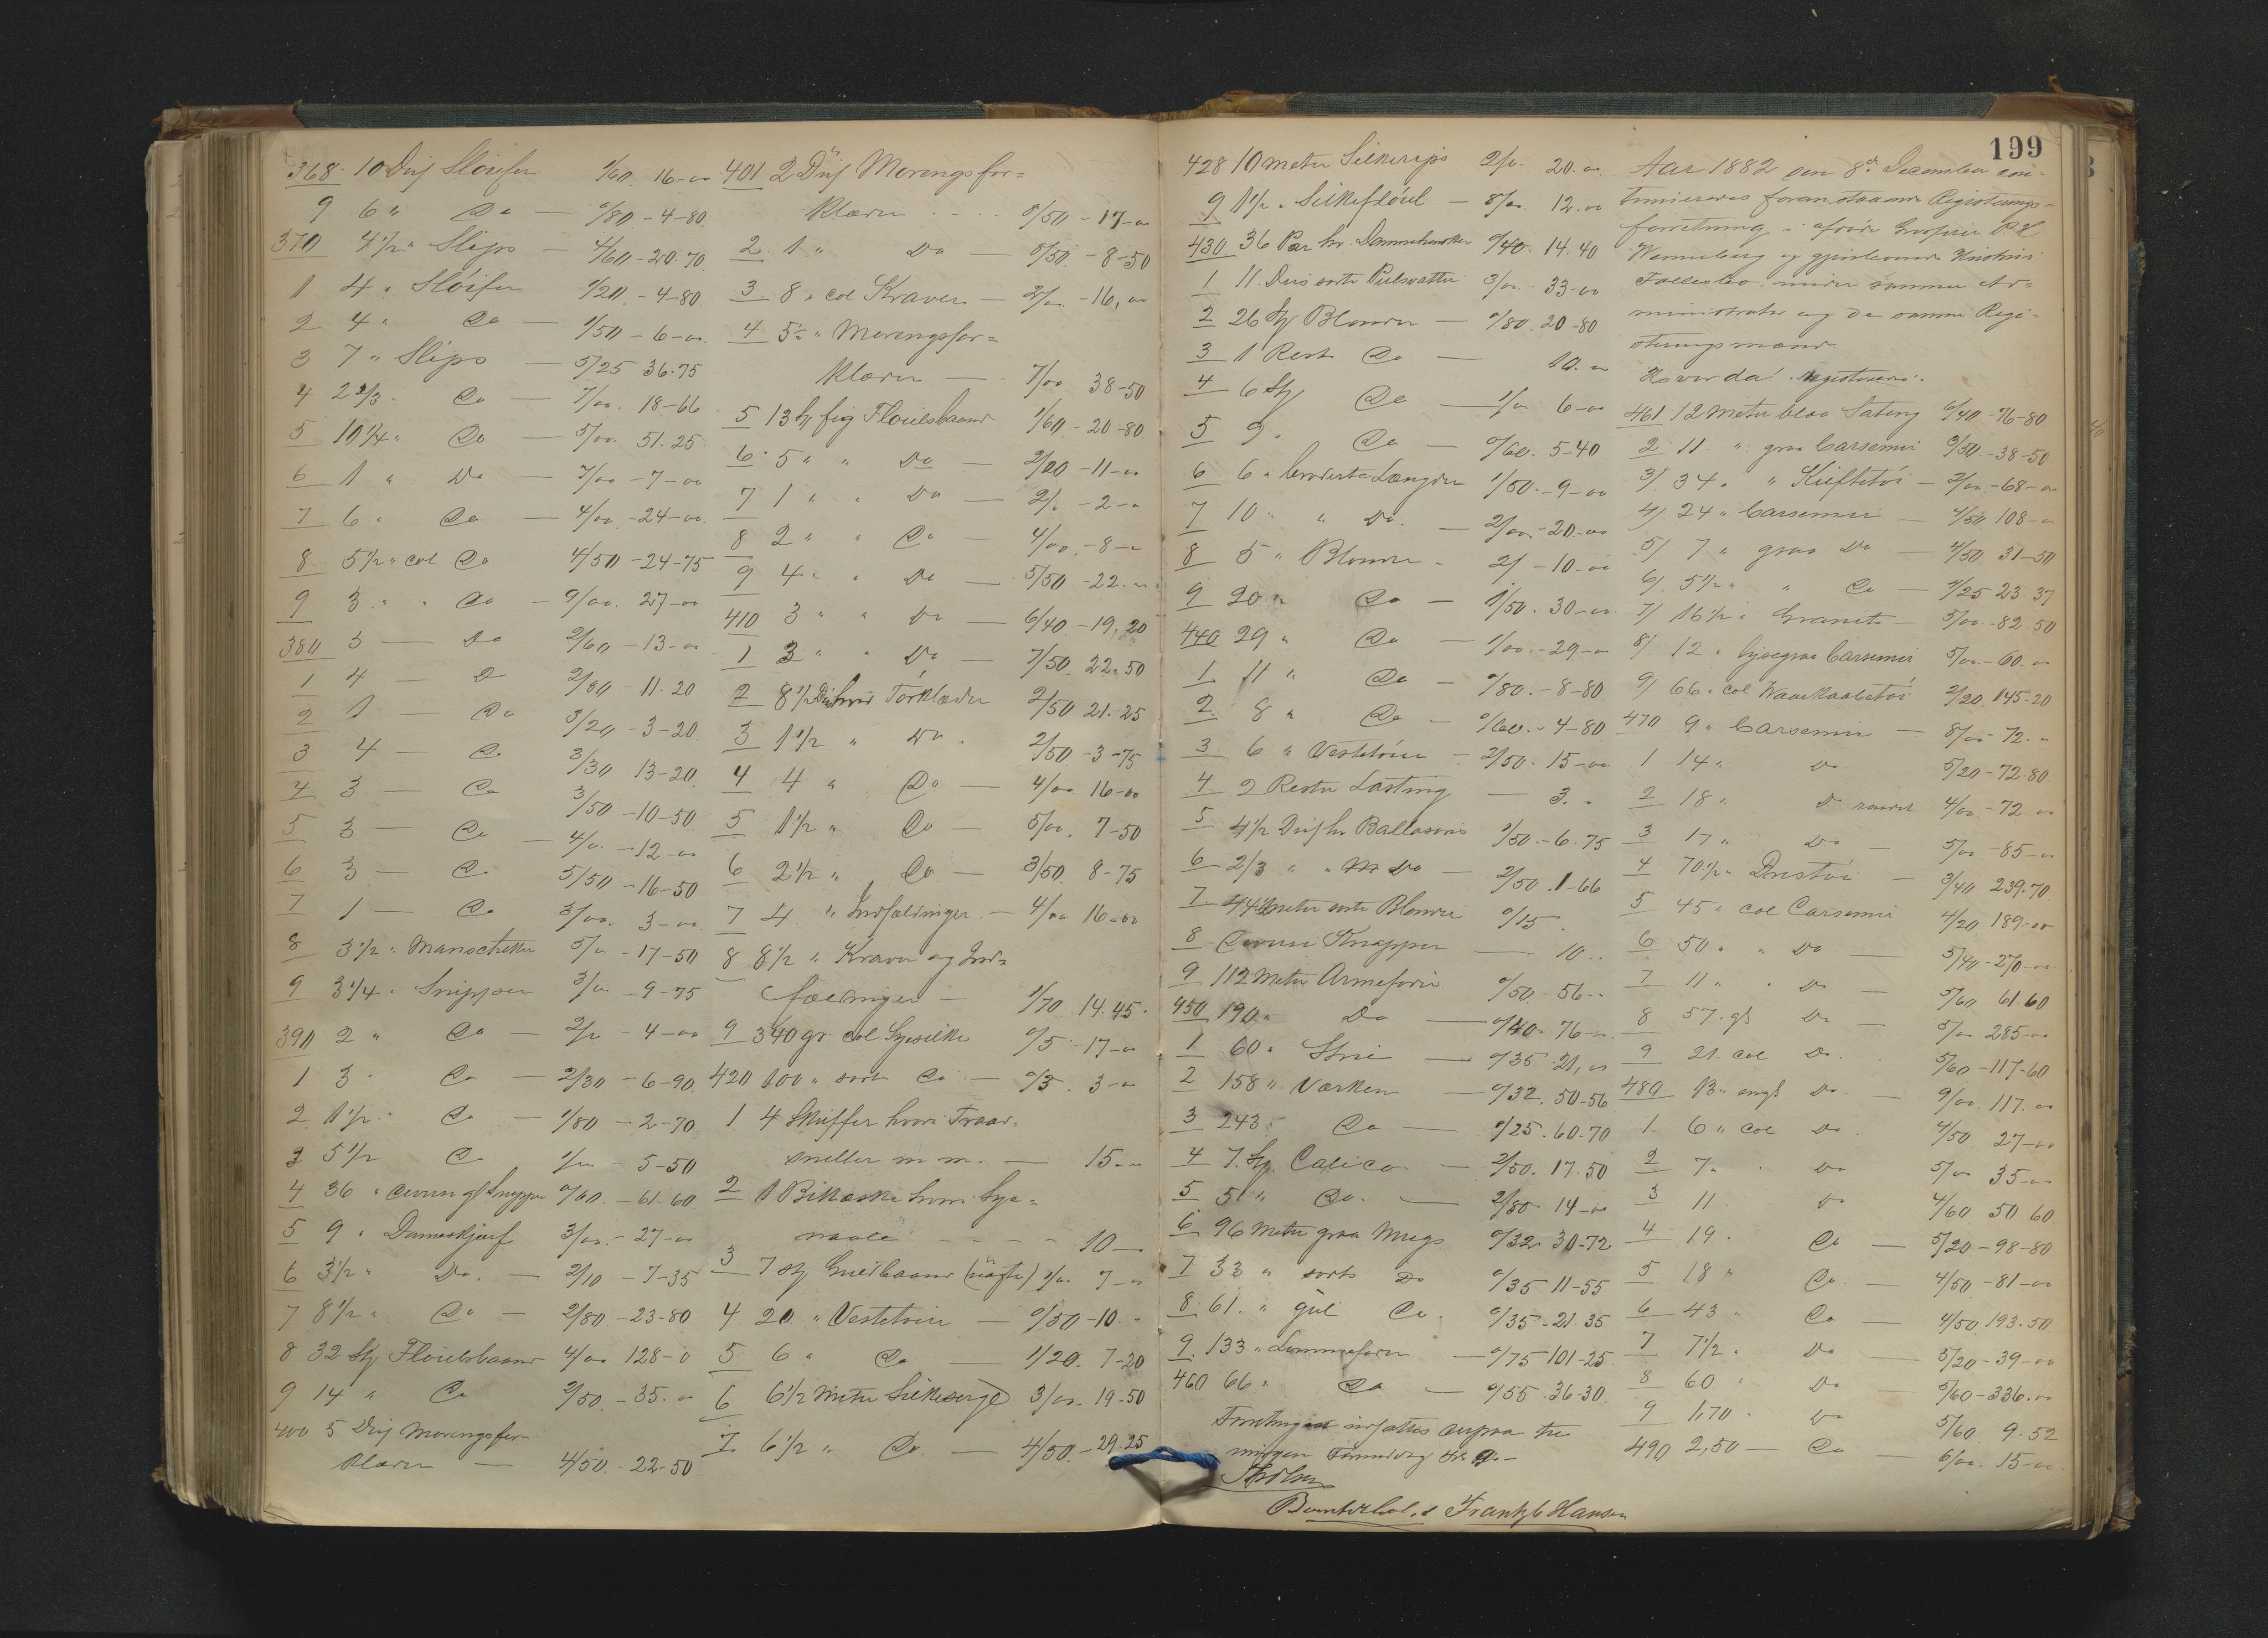 368 10 Dus Sloifer 1/60 16-00
9 6 " Do — 0/80 - 4-80
370 4 1/2 " Slips — 4/60 - 20.70
1 4 " Sloifer 1/20 - 4-80
2 4 " Do — 1/50 - 6-00
3 7 " Slips — 5/25 36.75
4 2 2/3 " Do — 7/00 18-66
5 10 1/4 " Do — 5/00 51.25
6 1 " Do — 7/00 - 7-00
7 6 " Do — 4/00 - 24-00
8 5 1/2 " col Do 4/50 - 24-75
9 3 " " Do — 9/00 27-00
380 3 — Do 2/60 - 13-00
1 4 — D 2/80 - 11.20
2 1 — Do 3/20 - 3-20
3 4 — Do 3/30 13-20
4 3 — Do 3/50 - 10-50
5 3 — Do — 4/00 - 12-00
6 3 — Do 5/50 - 16-50
7 1 — Do 3/00 3-00
8 3 1/2 " Manschetter 5/00 - 17-50
9 3 1/4 " Snipper 3/00 - 9-75
390 2 " Do — 2/00 - 4-00
1 3 " Do — 2/30 - 6-90
2 1 1/2 " Do — 1/80 - 2-70
3 5 1/2 Do — 1/00 - 5-50
4 36 " div gl Snipper - 61-60
5 9 " Dameskjærf 3/00 - 27-00
6 3 1/2 " Do — 2/10 - 7-35
7 8 1/2 " Do — 2/80 - 23-80
8 32 St Floielsbaand 4/00 128-0
9 14 " Do 2/50 - 35-00
400 5 Dus Morgensfor-
klæder — 4/50 - 22-50
401 2 Dus Morgensfor=
klæder 8/50 - 17-00
2 1 " Do 8/50 - 8-50
3 8 " col Kraver — 2/00 - 16,00
4 5 1/2 " Morgensfor=
klæder — 7/00 38-50
5 13 St fig Floielsbaand 1/60 - 20-80
6 5 " " Do — 2/20 - 11-00
7 1 " " Do — 2/ - 2-00
8 2 " " Do — 4/00 - 8-00
9 4 " " Do — 5/50 - 22-00
410 3 " " Do — 6/40 - 19,20
1 3 " " Do — 7/50 22.50
2 8 1/2 Dus hvid Tørklæder 2/50 21.25
3 1 1/2 " Do 2/50 - 3-75
4 4 " Do — 4/00 16-00
5 1 1/2 " Do — 5/00 7-50
6 2 1/2 " Do — 3/50 8-75
7 4 " Indfældinger — 4/00 16-00
8 8 1/2 " Kraver og Ind=
fældinger — 1/70 14.45
9 340 gr col Sysilke 0/5 - 17-00
420 100 " sort Do — 0/3 3-00
1 4 Skuffer hvori Traad=
sneller m m. — 15--
2 1 Blikæske hvori Sye=
naale - - - 10 —
3 7 St Guldbaand (uægte) 1/00 7-00
4 20 " Vestetoier — 0/50 - 10--
5 6 " Do — 1/20 7-20
6 6 1/2 Meter Silkeserge 3/00 19-50
7 6 1/2 " Do — 4/50 - 29.25
428 10 meter Silkerips 2/00 20.00
9 1 1/2 " Silkefloiel — 8/00 12.00
430 36 Par hv. Damehansker 0/40 14.40
1 11 Dus sorte Pulsvatter 3/00 33-00
2 26 St Blonder — 0/80 20-80
3 1 Rest Do — 10.00
4 6 St Do — 1/00 6-00
5 9 " Do — 0/60 5-40
6 6 " broderte Længder 1/50 - 9-00
7 10 " " Do — 2/00 - 20-00
8 5 " Blonder - 2/ - 10-00
9 20 " Do — 1/50 30-00
440 29 " Do — 1/00 - 29-00
1 11 " Do — 0/80 - 8-80
2 8 " Do — 0/60 - 4-80
3 6 " Vestetoier — 2/50 15-00
4 2 Rester Lasting — 3. -
5 4 1/2 Dus hv Ballasoris 1/50 - 6.75
6 2/3 " " Do — 2/50 1-66
7 44 meter sorte Blonder 0/15
8 Diverse Knapper — 10 ..
9 112 Meter Armeforer 0/50 - 56--
450 190 " Do — 0/40 76--
1 60 " Strie — 0/35 21,00
2 158 " Værken — 0/32 50-56
3 243 " Do — 0/25 60.70
4 7 St Calico — 2/50 17.50
5 5 " Do — 2/80 14-00
6 96 Meter graa Mugs 0/32 30-72
7 33 " sorts Do 0/35 11-55
8 61 " gul Do 0/35 - 21.35
9 133 " Lommeforer — 0/75 101-25
460 66 " Do — 0/55 36-30
Forretningen udsattes derpaa til
imorgen Formiddag Kl 9 -
Frantz C Hansen
199
Aar 1882 den 8de December con-
tinueredes foranstaaende Registrerings-
forretning i afdøde Grosserer P. E
Wenneberg og gjenlevende Hustrus
Fællesbo under samme Ad=
ministrator og de samme Regi-
streringsmænd.
Hvorda registrerede:
461 12 Meter blaa Sateng 6/40 - 76-80
2 11 " graa Carsemir 3/50 - 38-50
3/ 34 " " Kieftetoi — 2/00 - 68-00
4/ 24 " Carsemir — 4/50 108-00
5/ 7 " graa Do — 4/50 31-50
6/ 5 1/2 " " Do — 4/25 23.37
7/ 16 1/2 " Granit — 5/00 - 82.50
8/ 12 " lysegraa Carsemir 5/00 - 60.00
9/ 66 " col Kaabetoi 2/20 145-20
470 9 " Carsemir — 8/00 72.-
1 14 " Do 5/20 - 72.80
2 18 " Do 4/00 - 72-00
3 17 " Do — 5/00 - 85-00
4 70 1/2 " — 3/40 239.70
5 45 " col Carsemir 4/20 189.00
6 50 " " Do — 5/40 - 270-00
7 11 " " Do 5/60 61.60
8 57 " gl Do — 5/00 285-00
9 21 col Do 5/60 - 117-60
480 13 " engl Do — 9/00 117.00
1 6 " col Do 4/50 27-00
2 7 " Do 5/00 35-00
3 11 Do 4/60 50 60
4 19 " Do — 5/20 - 98-80
5 18 " Do — 4/50 - 81-00
6 43 " Do — 4/50 193.50
7 7 1/2 " Do — 5/20 - 39-00
8 60 " Do — 5/60 - 336.00
9 1,70 " Do 5/60 9.52
490 2,50 — Do — 6/00 15-00